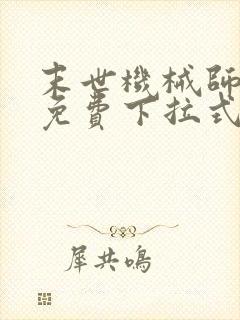 末世機械師
免費下拉式
犀共鳴